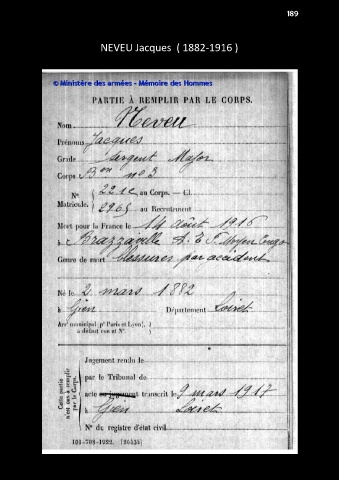 189
NEVEU Jacques ( 1882-1916 )
© Ministère des armées - Mémoire des Hommes
PARTIE À REMPLIR PAR LE CORPS.
Nom Neveu
Prénoms Jacques
Grade Sergent Major
Corps Bon no 3
No 221c au Corps. — Cl.
Matricule.
2965 au Recrutement
Mort pour la France le 14 août 1916
à Brazzaville A. E. F. Moyen Congo
Genre de mort blessures par accident
Né le 2 mars 1882
à Gien Département Loiret
Arrt municipal (pr Paris et Lyon),
à défaut rue et No.
Cette partie n'est pas à remplir par le Corps.
Jugement rendu le
par le Tribunal de
acte ou jugement transcrit le 9 mars 1917
à Gien Loiret
No du registre d'état civil
101-708-1922. [26434]